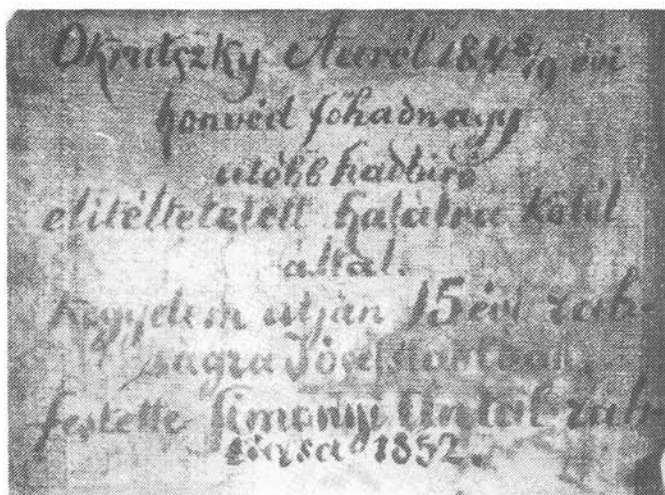 Okrutszky Aurél 1848/49 évi
honvéd főhadnagy
utóbb hadtúró
elitéltetztett halálra kötél
által.
Kegyelem utján 15 évi rab-
ságra Jósefstadtban.
festette Simonyi Antal rab
társa 1852.